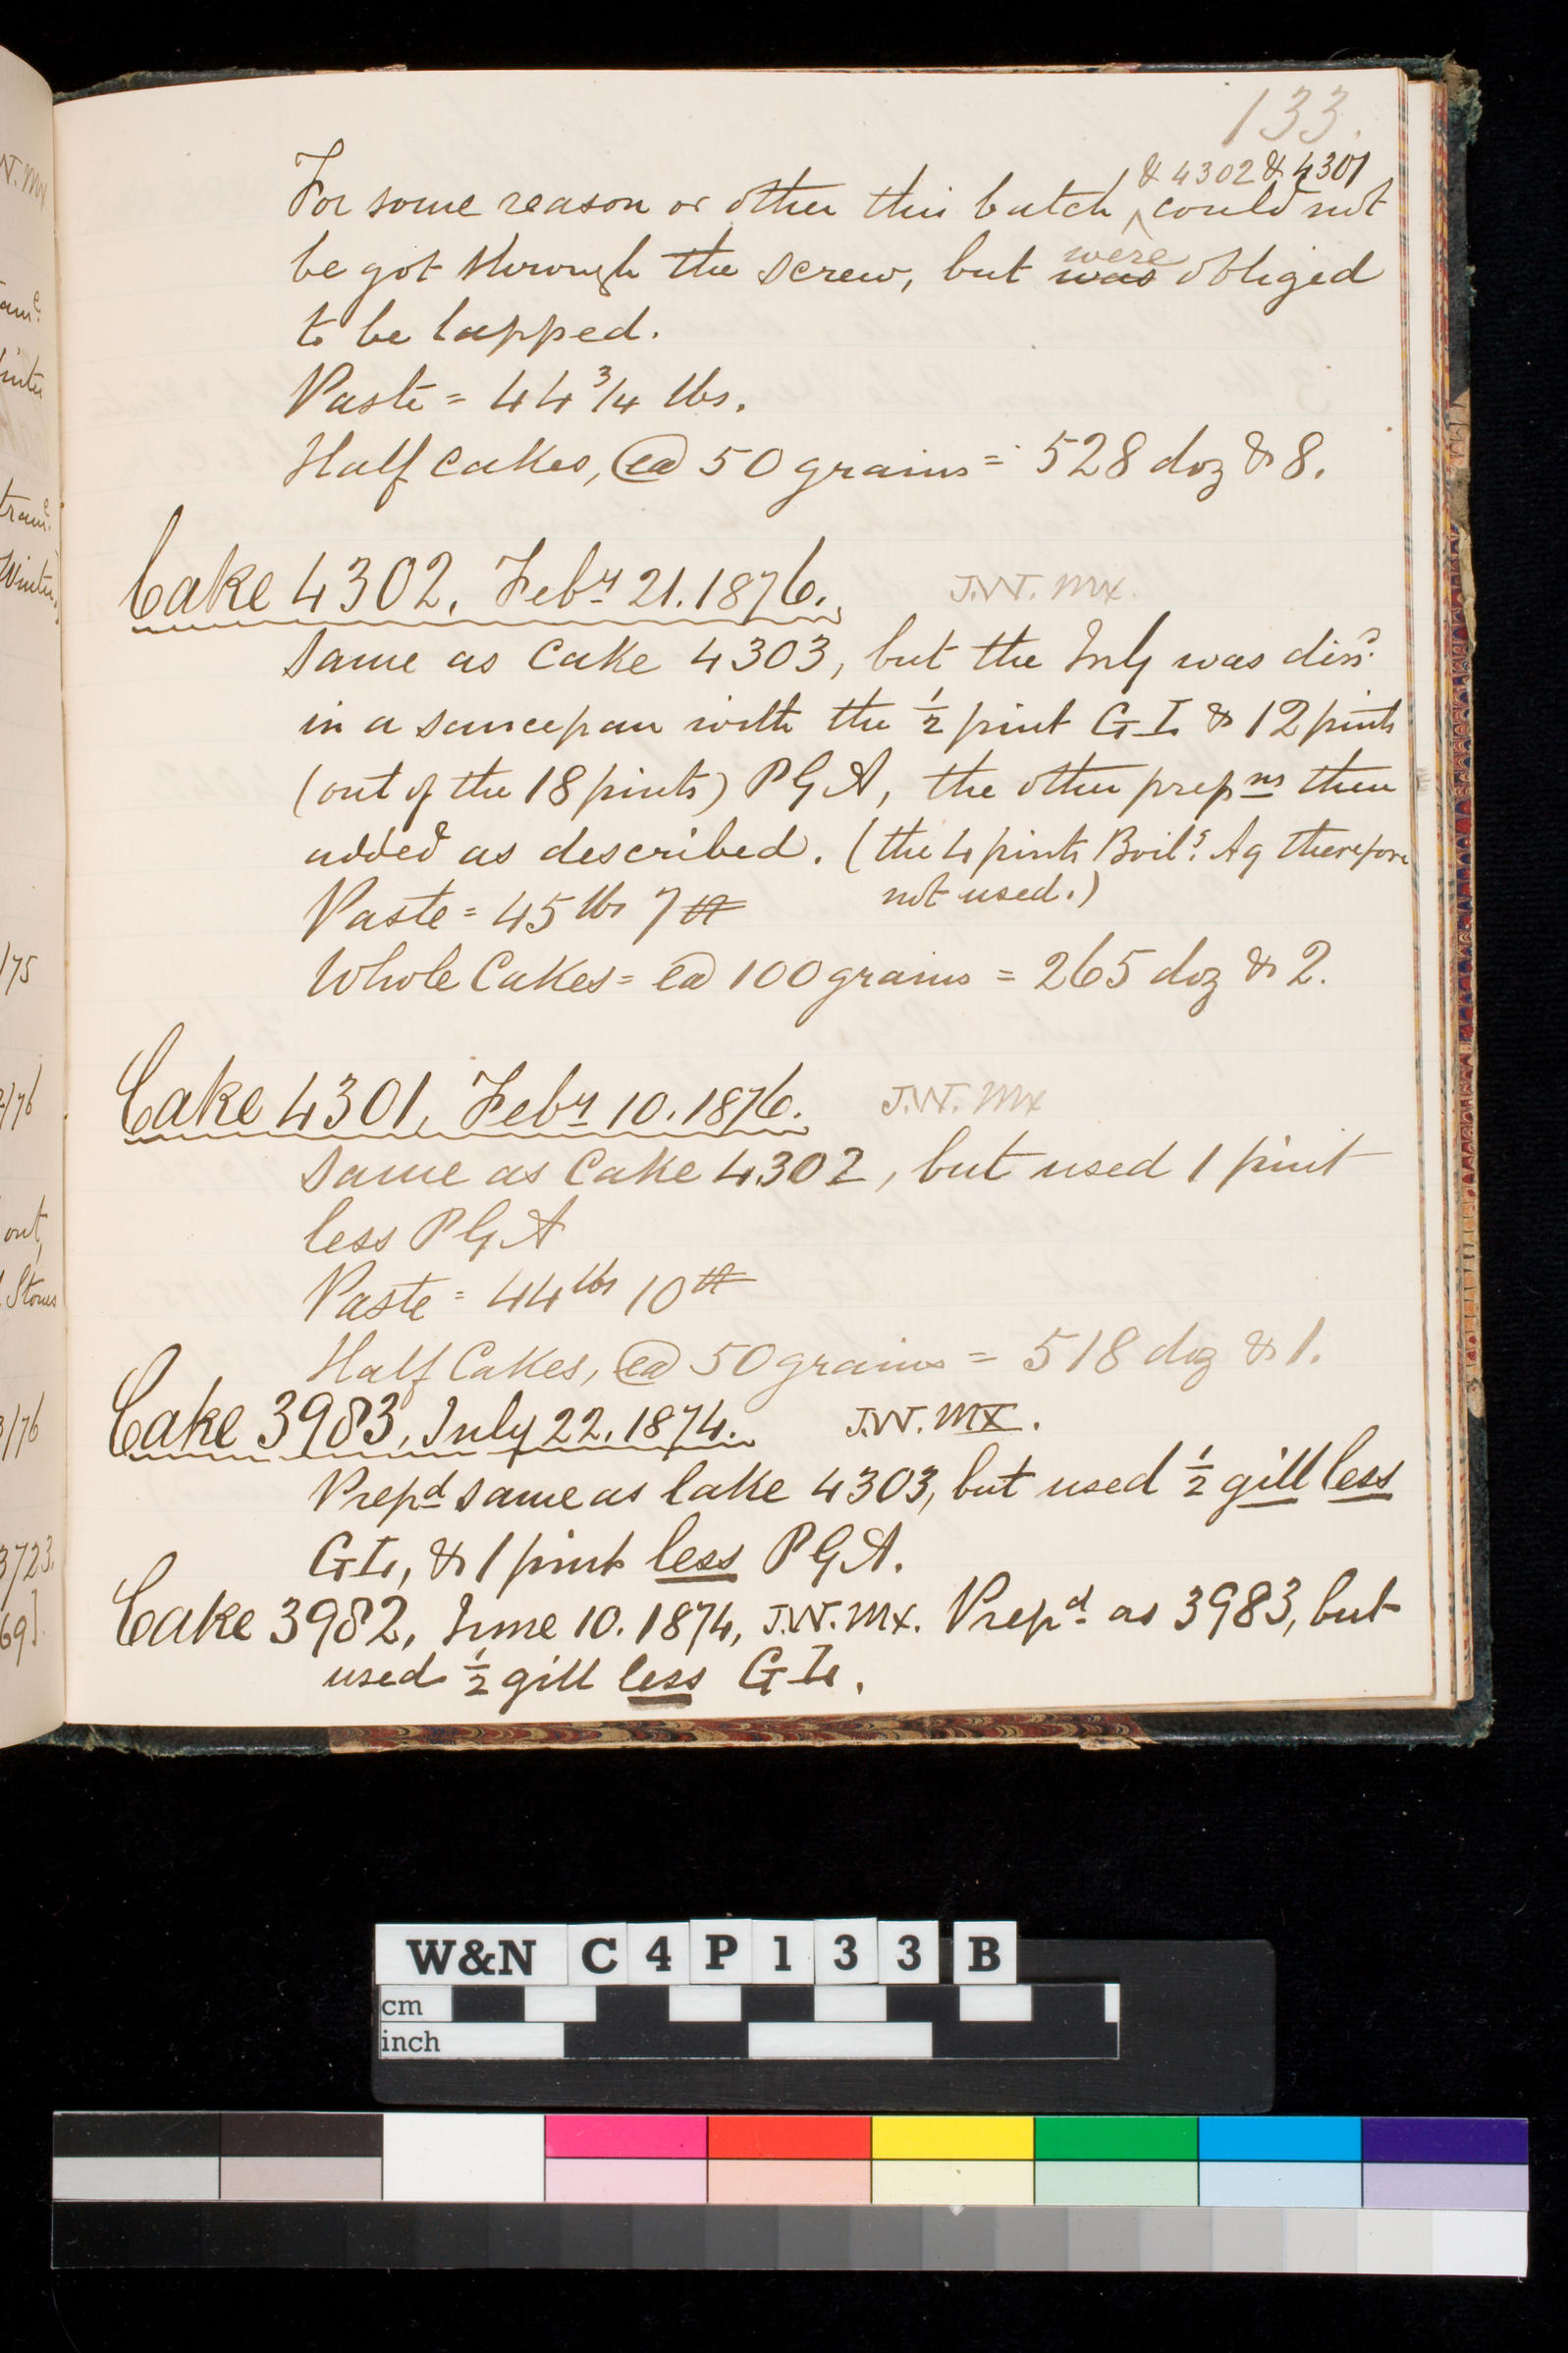 133.
& 4302 & 4301
For some reason or other this batch ^ could not
were
be got through the screw, but was obliged
to be lapped.
Paste = 44 3/4 lbs.
Half Cakes, @ 50 grains = 528 doz & 8.
Cake 4302, Feby 21. 1876. J.W. Mx.
Same as Cake 4303, but the Ing was diss.
in a saucepan with the ½ pint GL & 12 pints
(out of the 18 pints) PGA, the other prepns then
added as described. (the 4 pints Boilg Aq therefore
not used.)
Paste = 45 lbs 7
Whole Cakes = ea 100 grains = 265 doz & 2.
Cake 4301, Feby 10. 1876. J.W. Mx
Same as Cake 4302, but used 1 pint
less PGA
Paste = 44 lbs 10
Half Cakes, ea 50 grains = 518 doz & 1.
Cake 3983, July 22. 1874. J.W. Mx.
Prepd same as Cake 4303, but used ½ gill less
GL, & 1 pint less PGA.
Cake 3982, June 10. 1874, J.W. Mx. Prepd as 3983, but
used ½ gill less GL.
W. Mx
175
Stones
3723.
69].
W&N C 4 P 1 3 3 B
cm
inch